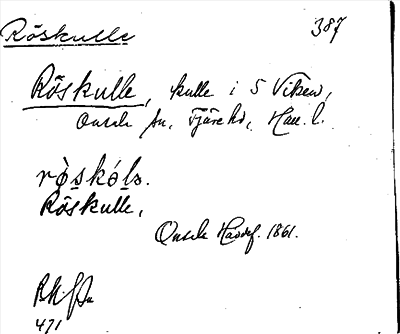 Röskulle 387
Röskulle, kulle i S Viken,
Onsala sn, Fjäre hd, Hall. l.
rò̤skó̤ls.
Röskulle,
Onsala 1861.
471